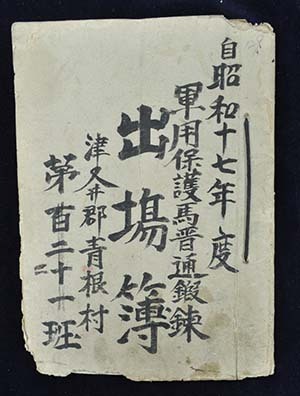 自昭和十七年度
軍用保護馬普通鍛錬
出場簿
津久井郡青根村
第百二十一班